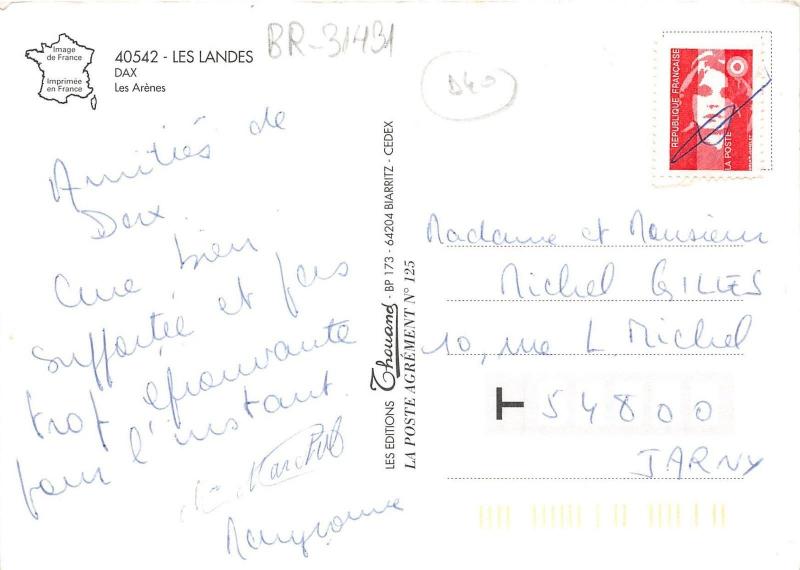 Image
de France
Imprimée
en France
40542 - LES LANDES
DAX
Les Arènes
BR-31431
D40
RÉPUBLIQUE FRANÇAISE
LA POSTE
Amitiés de
Dax.
Cure bien
supportée et pas
trop éprouvante
pour l'instant.
LES EDITIONS Thouand - BP 173 - 64204 BIARRITZ - CEDEX
LA POSTE AGRÉMENT N° 125
Madame et Monsieur
Michel GILLES
10, rue L. Michel
T 54800
JARNY